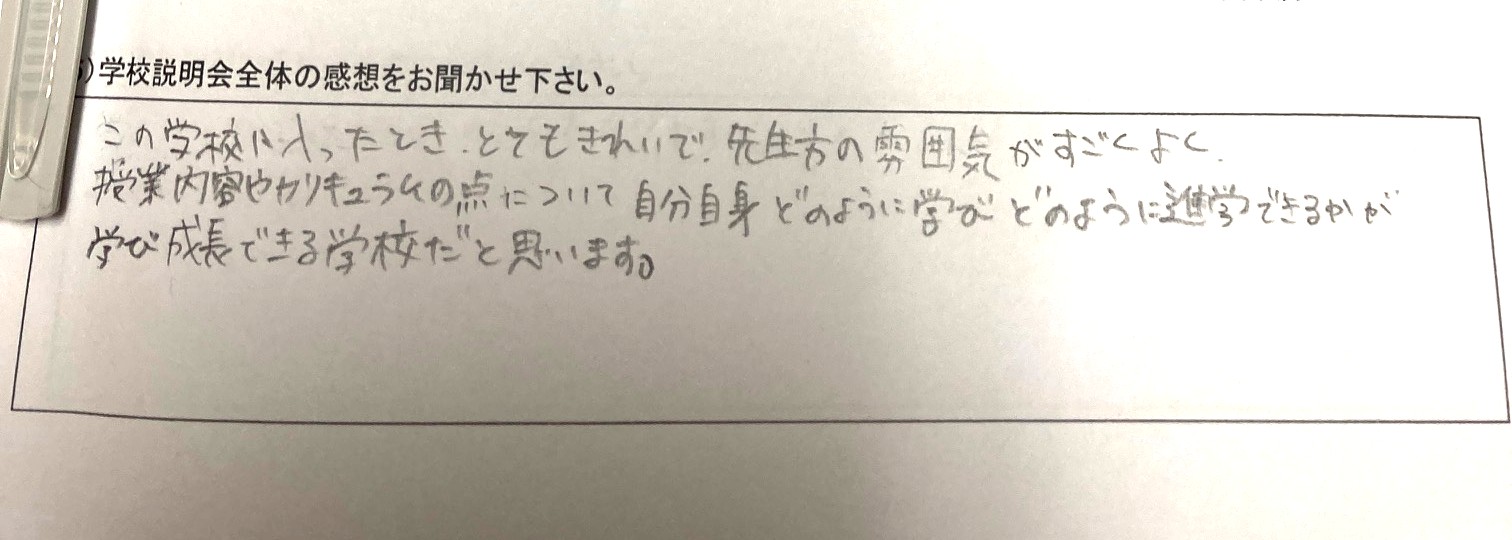 )学校説明会全体の感想をお聞かせ下さい。
この学校に入ったとき、とてもきれいで、先生方の雰囲気がすごくよく、
授業内容やカリキュラムの点について自分自身どのように学びどのように進学できるかが
学び成長できる学校だと思います。